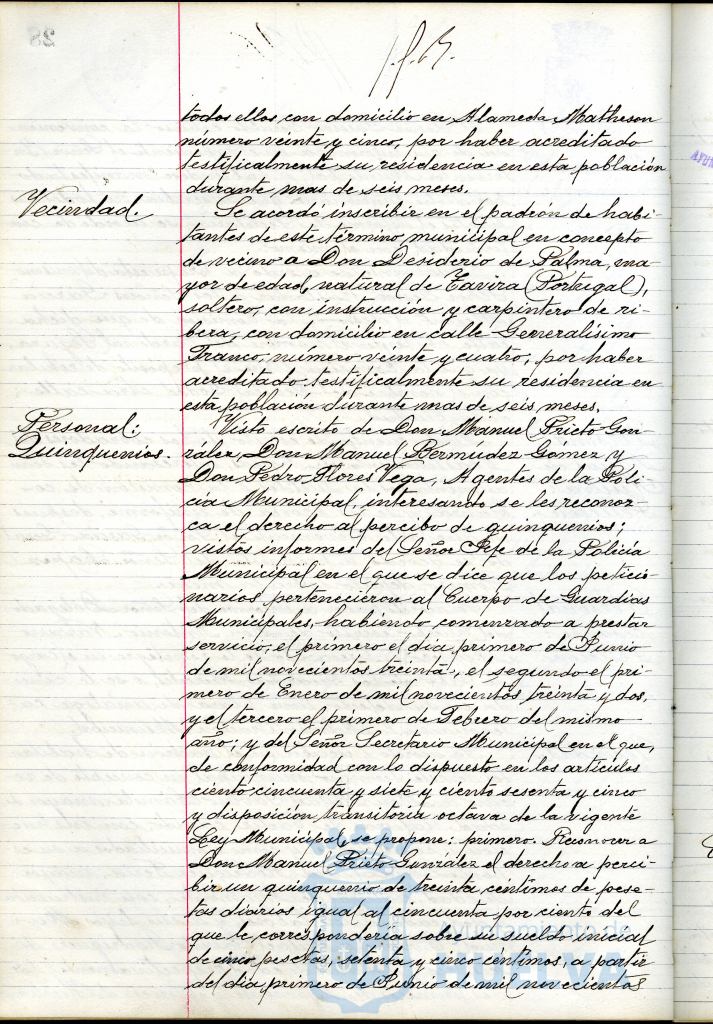 todos ellos, con domicilio en Alameda Matheson
número veinte y cinco, por haber acreditado
testificalmente su residencia en esta población
durante mas de seis meses.
Vecindad.
Se acordó inscribir en el padrón de habi-
tantes de este término municipal en concepto
de vecino a Don Desiderio de Palma, ma-
yor de edad, natural de Tavira (Portugal),
soltero, con instrucción y carpintero de ri-
bera, con domicilio en calle Generalísimo
Franco, número veinte y cuatro, por haber
acreditado testificalmente su residencia en
esta población durante mas de seis meses.
Personal:
Quinquenios.
Visto escrito de Don Manuel Prieto Gon-
zález, Don Manuel Bermudez Gomez y
Don Pedro Flores Vega, Agentes de la Poli-
cía Municipal, interesando se les reconoz-
ca el derecho al percibo de quinquenios;
vistos informes del Señor Jefe de la Policía
Municipal en el que se dice que los peticio-
narios pertenecieron al Cuerpo de Guardias
Municipales, habiendo comenzado a prestar
servicio, el primero el dia primero de Junio
de mil novecientos treinta, el segundo el pri-
mero de Enero de mil novecientos treinta y dos,
y el tercero el primero de Febrero del mismo
año; y del Señor Secretario Municipal en el que,
de conformidad con lo dispuesto en los artículos
ciento cincuenta y siete y ciento sesenta y cinco
y disposición transitoria octava de la vigente
Ley Municipal, se propone: primero. Reconocer a
Don Manuel Prieto González el derecho a perci-
bir un quinquenio de treinta céntimos de pese-
tas diarios igual al cincuenta por ciento del
que le correspondería sobre su sueldo inicial
de cinco pesetas, setenta y cinco céntimos, a partir
del dia primero de Junio de mil novecientos
Ayuntamiento de
HUELVA